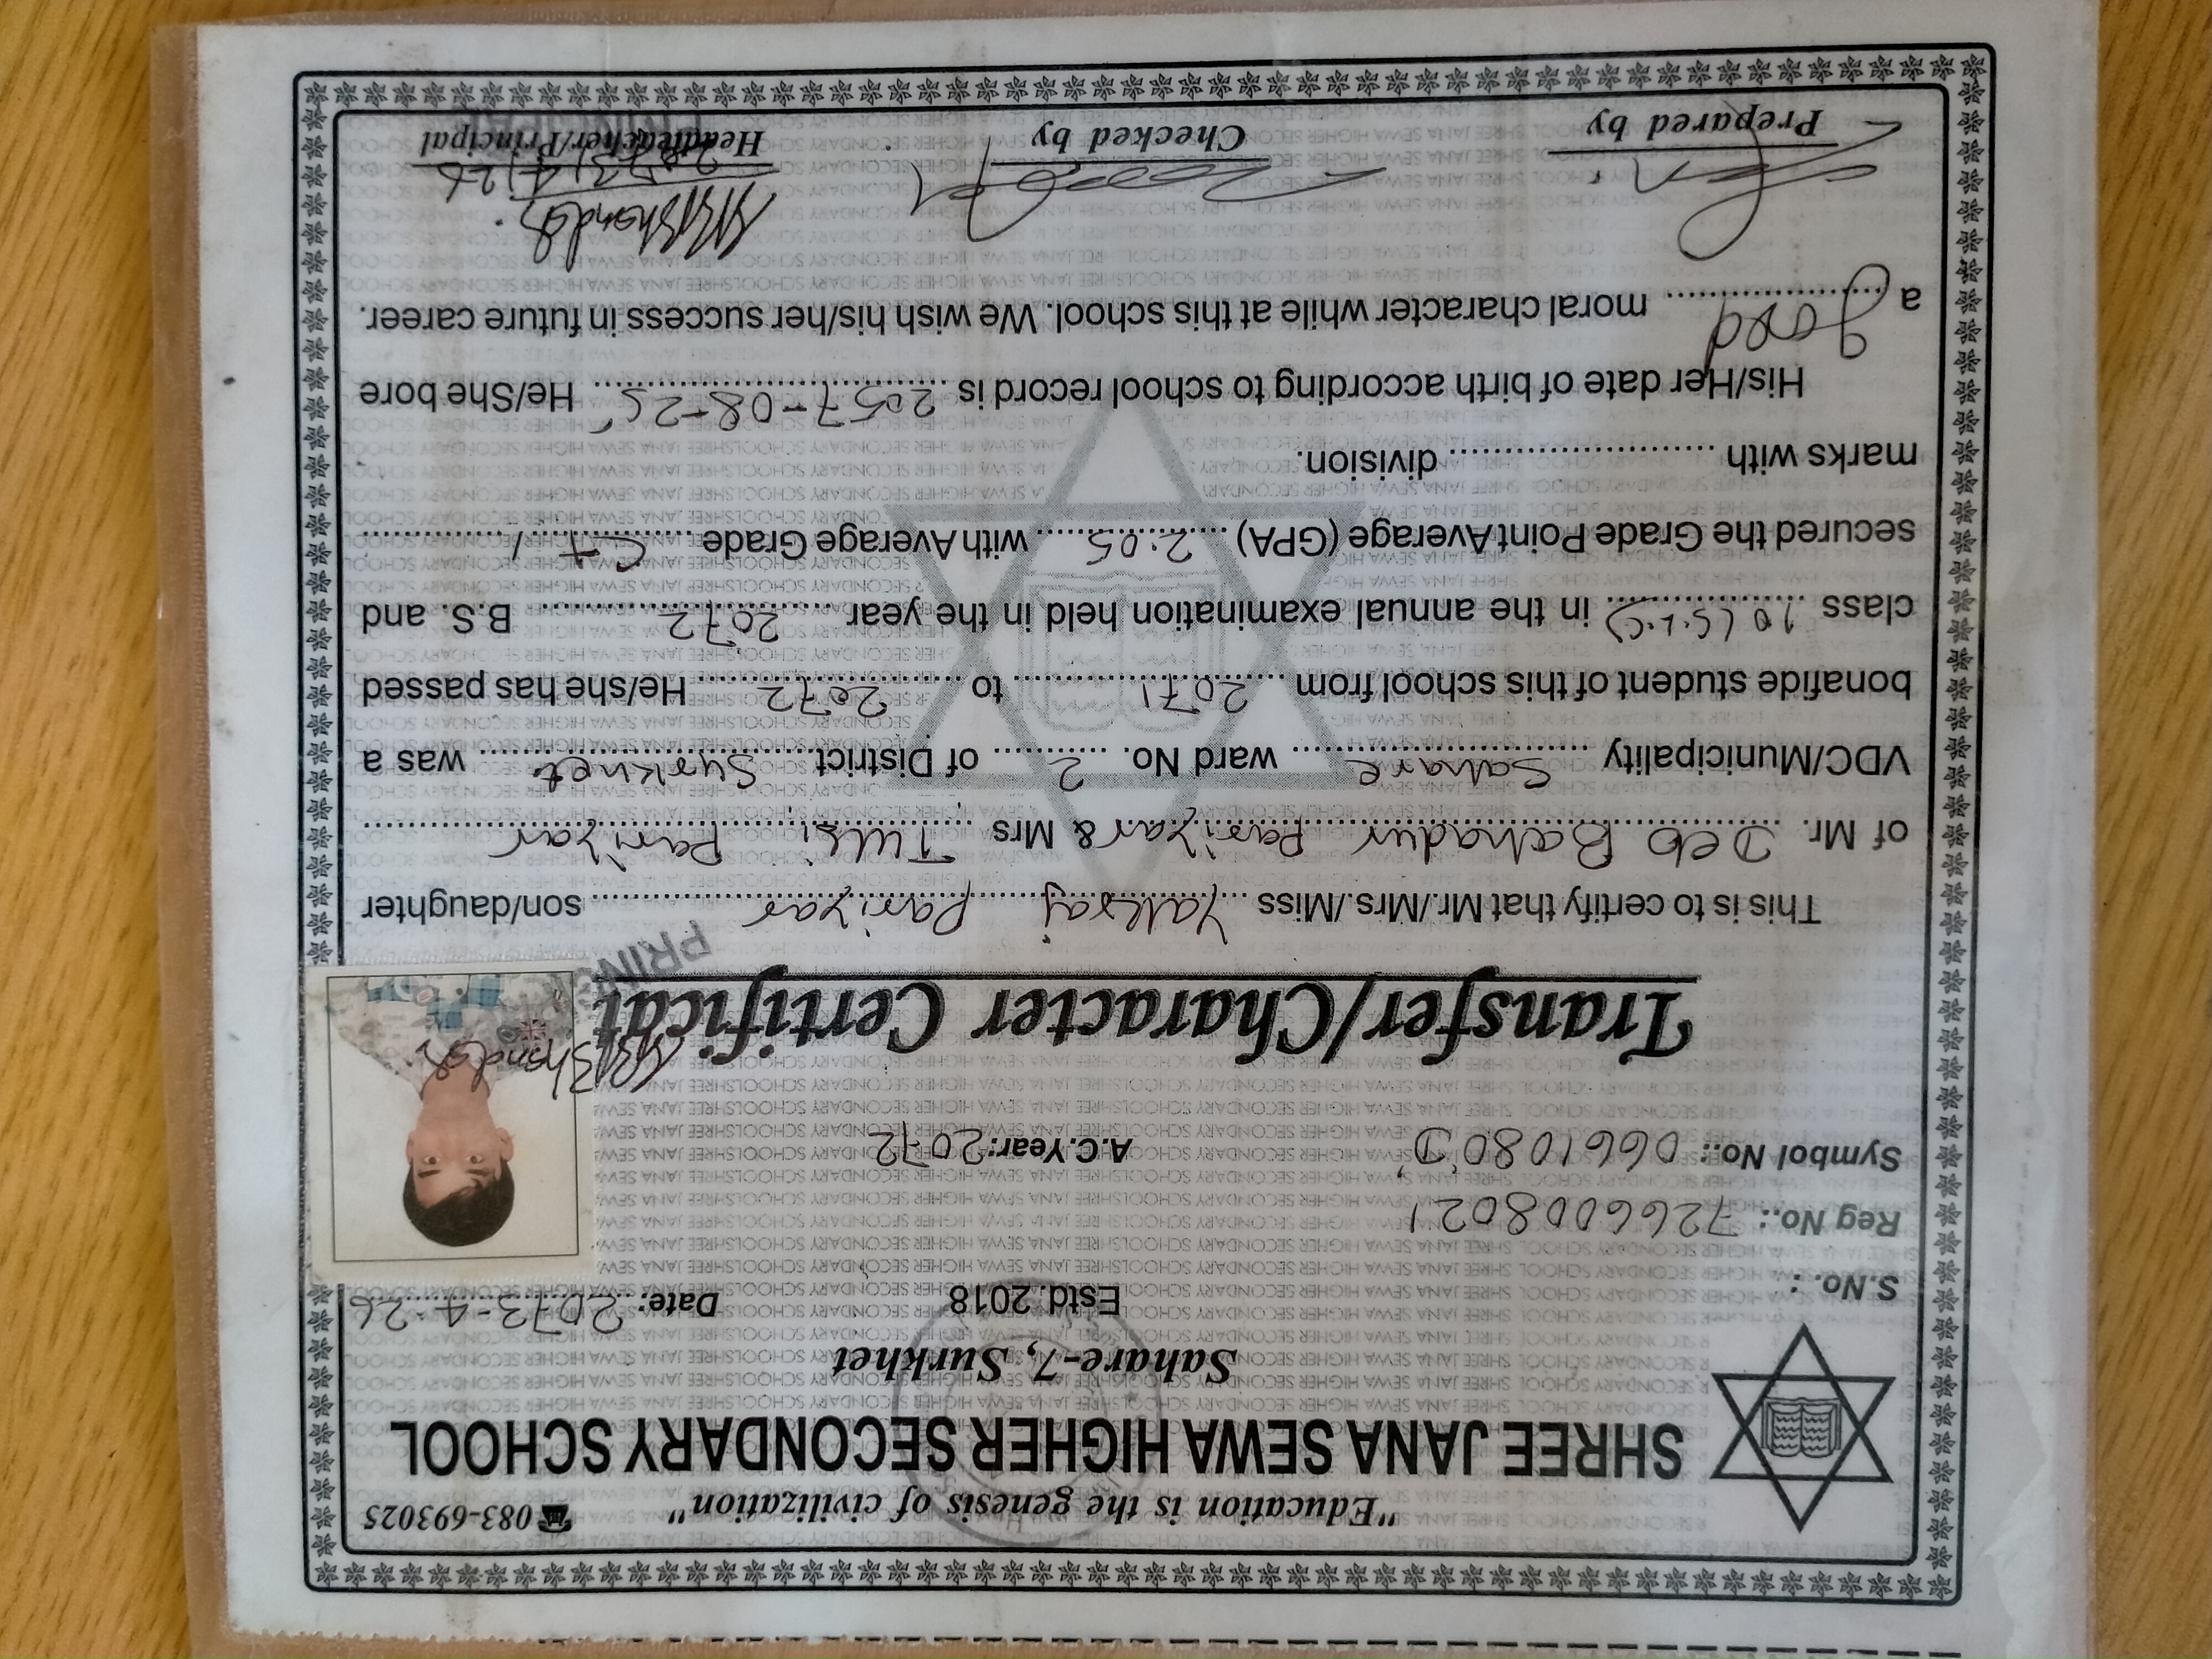 "Education is the genesis of civilization" ☎083-693025
SHREE JANA SEWA HIGHER SECONDARY SCHOOL
Sahare-7, Surkhet
Estd. 2018
S.No. :
Date: 2073-4-26
Reg No.: 7266008021
Symbol No.: 0661080 D
A.C.Year: 2072
Transfer/Character Certificat
PRINC
This is to certify that Mr./Mrs./Miss Yakraj Pariyar son/daughter
of Mr. Deb Bahadur Pariyar & Mrs Tulsi Pariyar
VDC/Municipality Sahare ward No. 2 of District Surkhet was a
bonafide student of this school from 2071 to 2072 He/she has passed
class 10 (S.L.C) in the annual examination held in the year 2072 B.S. and
secured the Grade Point Average (GPA) 2.05 with Average Grade C+
marks with division.
His/Her date of birth according to school record is 2057-08-25 He/She bore
a good moral character while at this school. We wish his/her success in future career.
2073/4/26
Prepared by Checked by Headteacher/Principal
PRINCIPAL